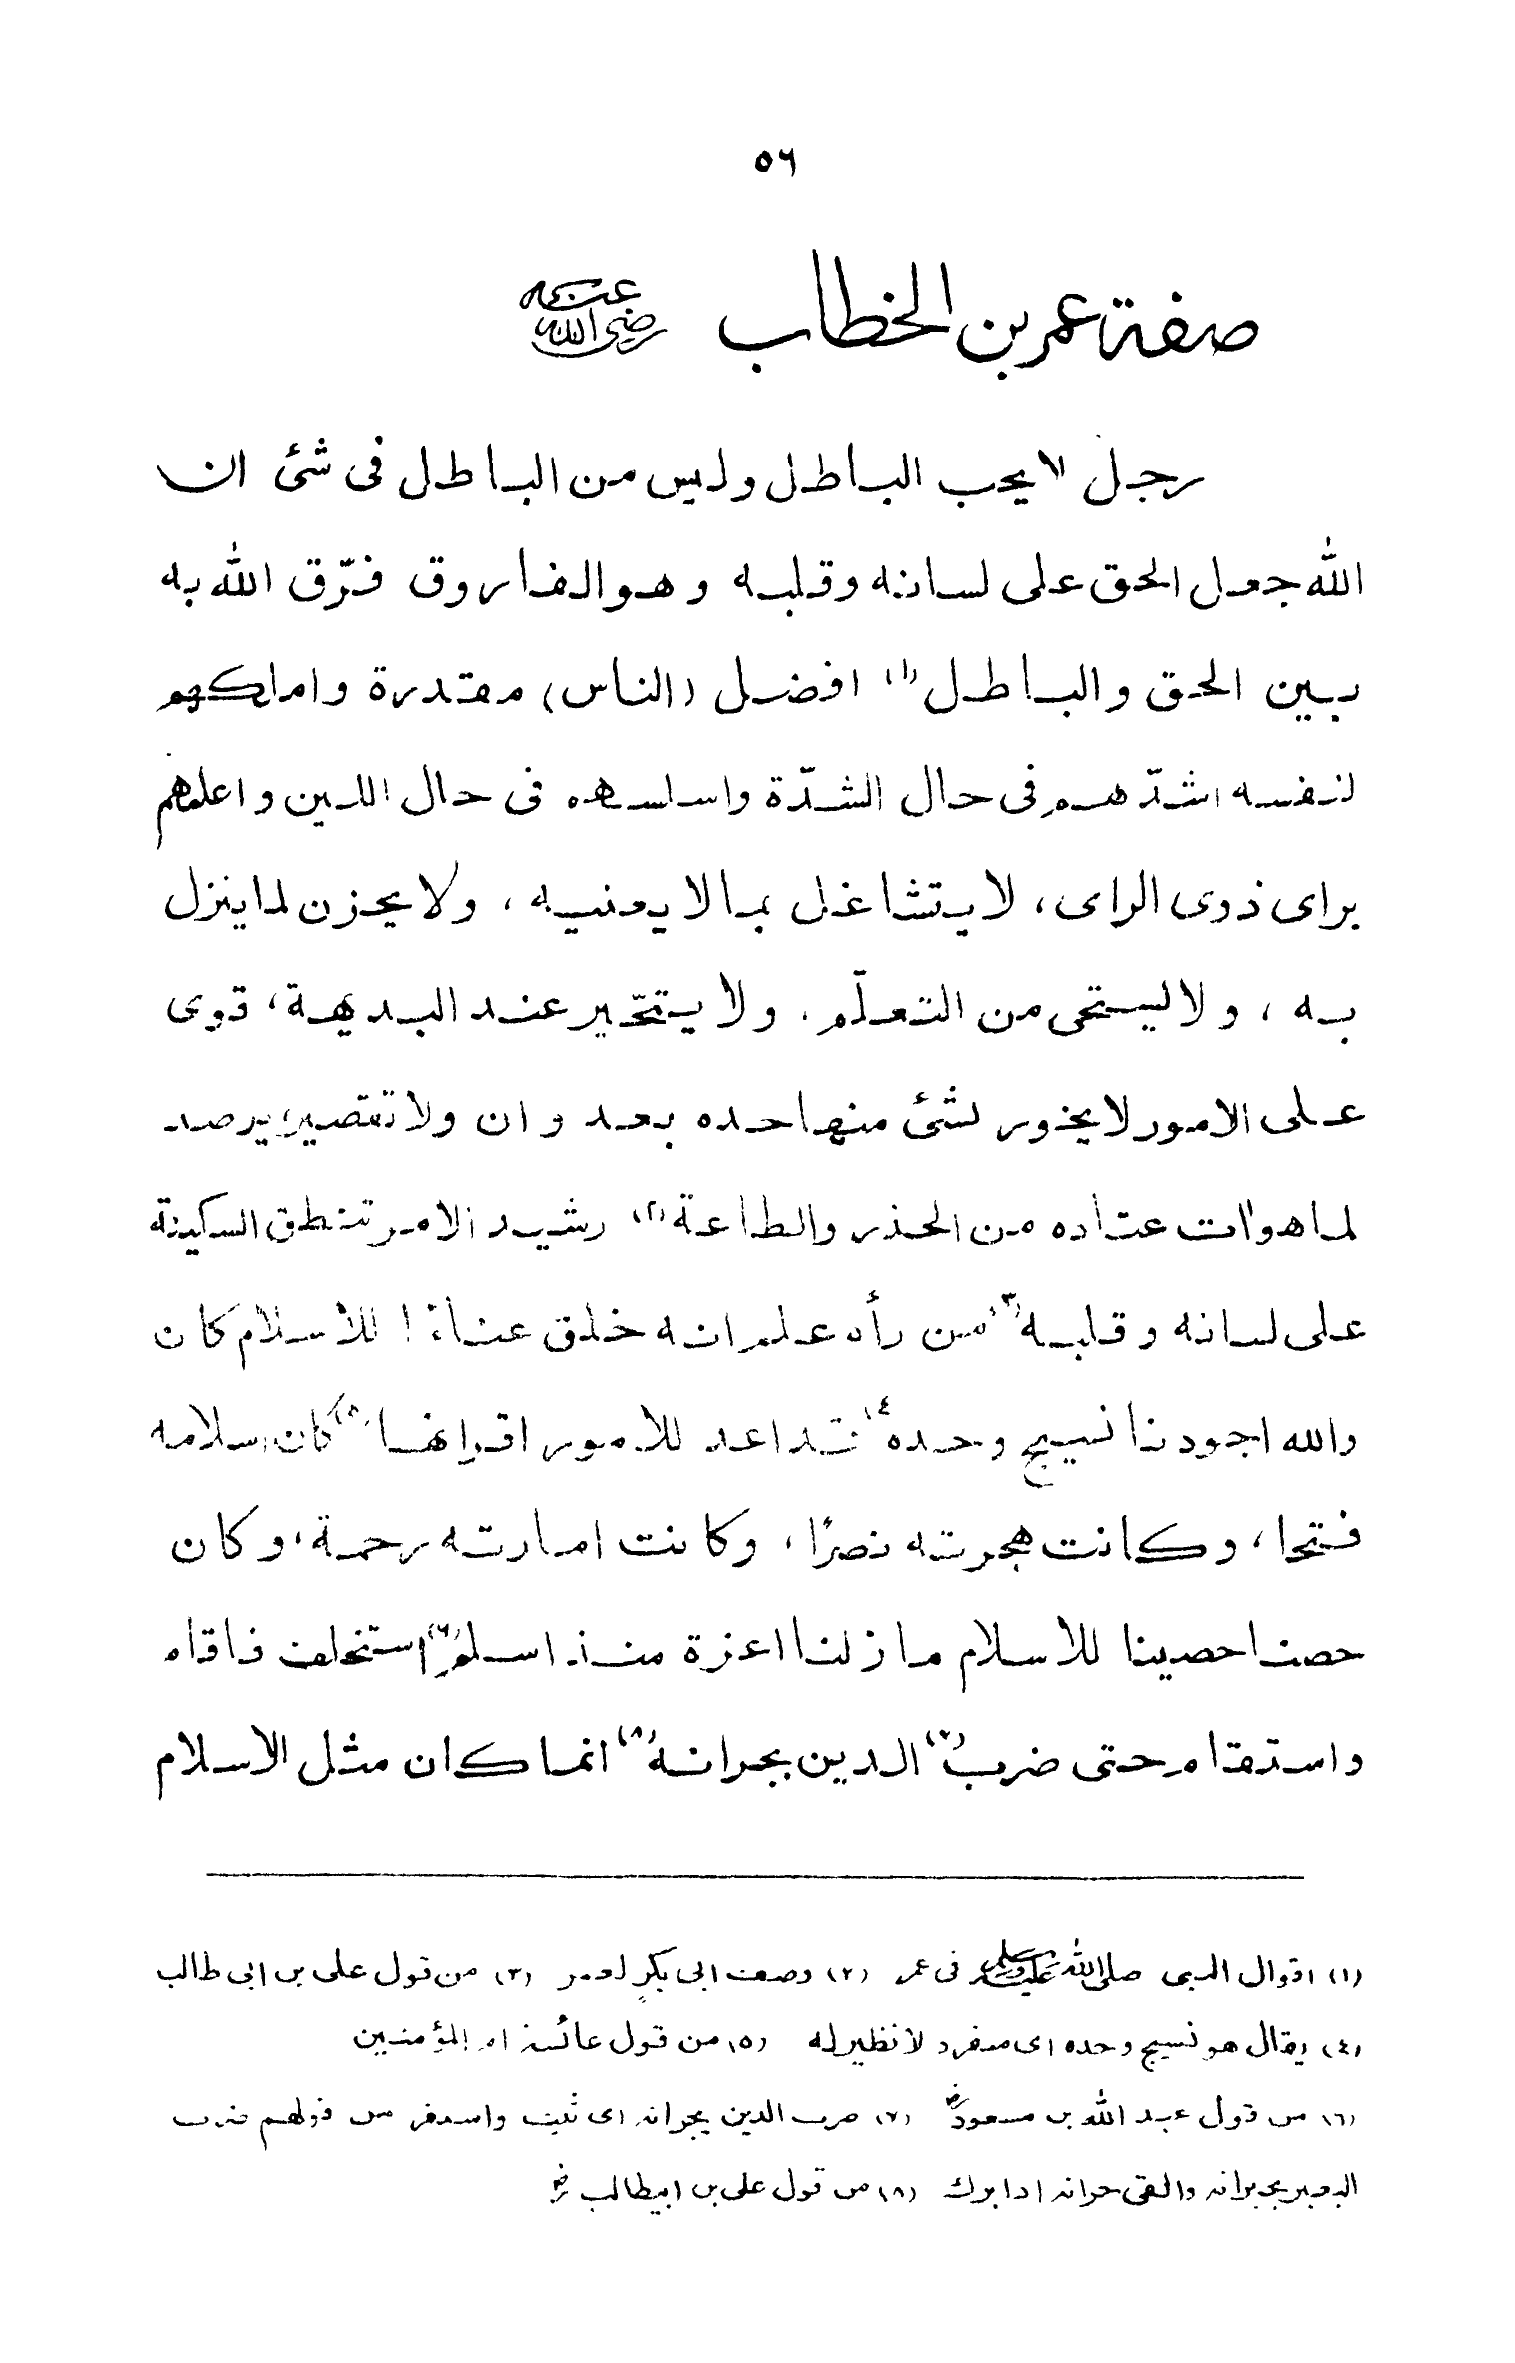 ٥٦
صفة عمر بن الخطاب رضي الله عنه
رجل لا يحب الباطل وليس من الباطل فى شئ ان
الله جعل الحق على لسانه وقلبه وهو الفاروق فرّق الله به
بين الحق والباطل (١) افضل (الناس) مقتدرة واملكهم
لنفسه اشدّهم فى حال الشدّة واسلسهم فى حال اللين واعلمهم
براى ذوى الراى، لا يتشاغل بما لا يعنيه، ولا يحزن لما ينزل
به، ولا يستحى من التعلّم. ولا يتحيّر عند البديهة، قوى
على الامور لا يخور لشئ منها حده بعد وان ولا تقصير، يرصد
لما هو ات عتاده من الحذر والطاعة (٢) رشيد الامر تنطق السكينة
على لسانه وقلبه (٣) من رأه علم انه خلق عناءً ا للاسلام كان
والله اجودنا نسيج وحده (٤) قد اعد للامور اقرانها (٥) كان اسلامه
فتحا، وكانت هجرته نصرًا، وكانت امارته رحمة، وكان
حصنا حصينا للاسلام ما زلنا اعزة منذ اسلم (٦) استخلف فاقام
واستقام حتى ضرب (٧) الدين بجرانه (٨) انما كان مثل الاسلام
(١) اقوال النبى صلى الله عليه وسلم فى عمر (٢) وصف ابى بكر لعمر (٣) من قول على بن ابى طالب
(٤) يقال هو نسيج وحده اى منفرد لا نظير له (٥) من قول عائشة ام المؤمنين
(٦) من قول عبد الله بن مسعود رض (٧) ضرب الدين بجرانه اى ثبت واستقر من قولهم ضرب
البعير بجرانه والقى جرانه اذا برك (٨) من قول على بن ابيطالب رض